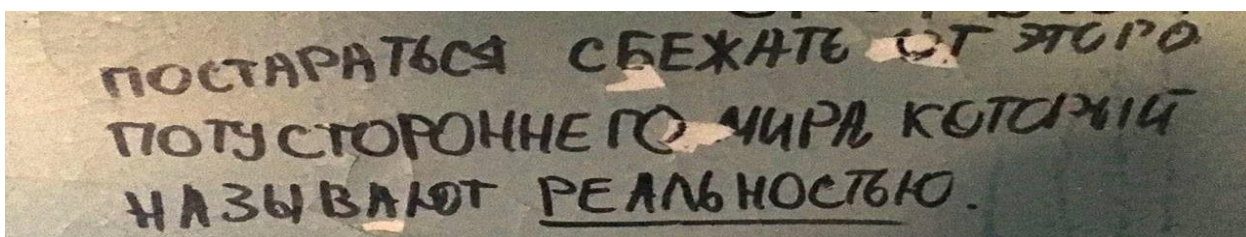 ПОСТАРАТЬСЯ СБЕЖАТЬ ОТ ЭТОГО
ПОТУСТОРОННЕГО МИРА КОТОРЫЙ
НАЗЫВАЮТ РЕАЛЬНОСТЬЮ.